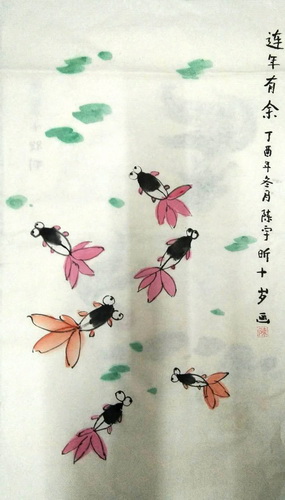 连年有余丁酉年冬月陈宇昕十岁画